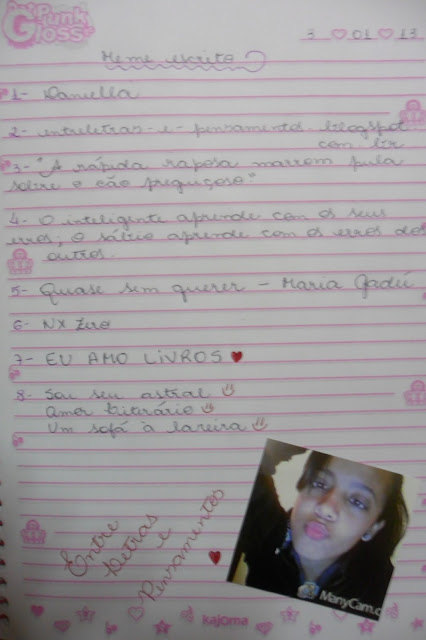 Punk
Gloss
3 01 13
Meme escrito
1- Daniella
2- entreletras-e-pensamentos.blogspot.
com.br
3- "A rápida raposa marrom pula
sobre o cão preguiçoso"
4- O inteligente aprende com os seus
erros, o sábio aprende com os erros dos
outros.
5- Quase sem querer - Maria Gadú
6- NX Zero
7- EU AMO LIVROS
8- Sou seu astral
Amor Literário
Um sofá à lareira
Entre
Letras
e
Pensamentos
ManyCam.c
kajoma